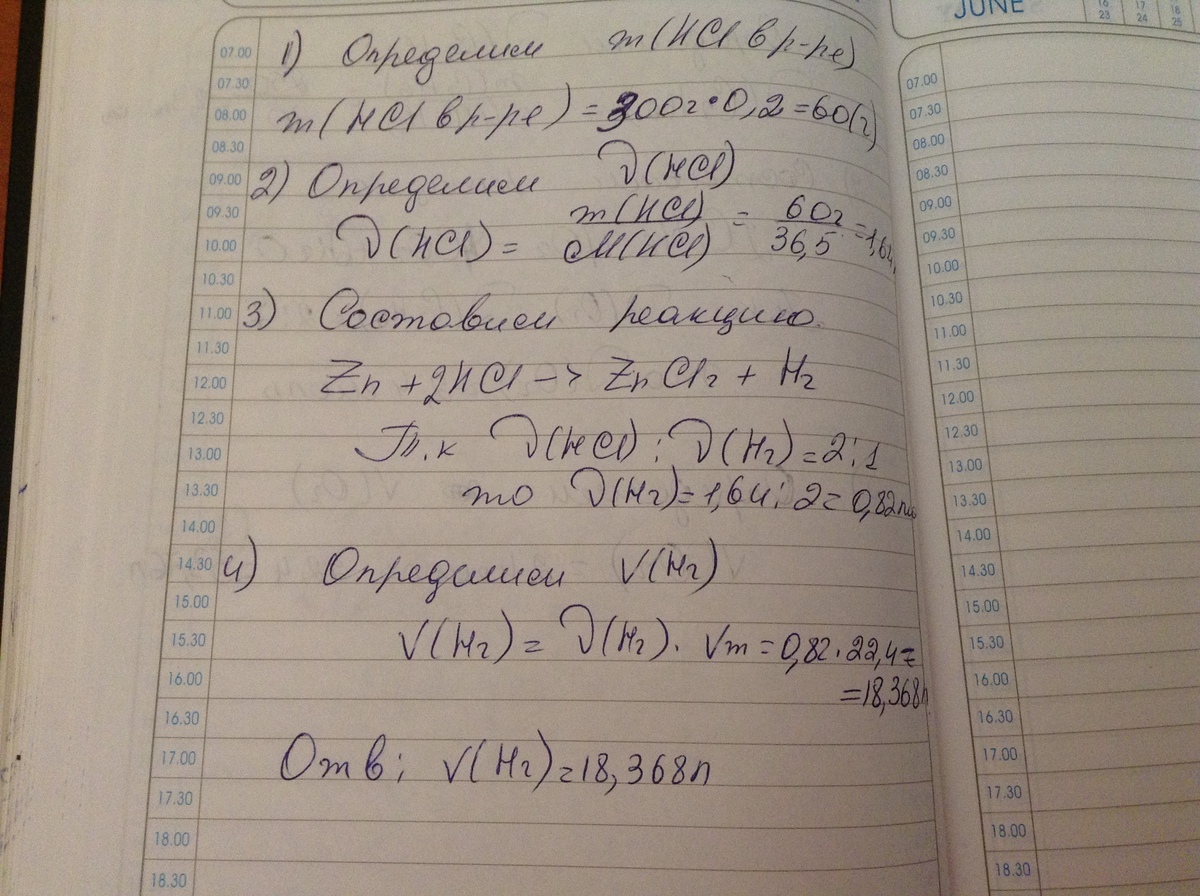 JUNE
16 17 18
23 24 25
1) Определим m(HCl в р-ре)
m(HCl в р-ре) = 300г·0,2=60(г)
2) Определим ν(HCl)
ν(HCl) = m(HCl)/M(HCl) = 60г/36,5 = 1,64
3) Составим реакцию.
Zn + 2HCl -> ZnCl2 + H2
Т.к ν(HCl) : ν(H2) = 2:1
то ν(H2) = 1,64 : 2 = 0,82мо
4) Определим V(H2)
V(H2) = ν(H2) · Vm = 0,82·22,4=
=18,368л
Отв: V(H2)=18,368л
07.00
07.30
08.00
08.30
09.00
09.30
10.00
10.30
11.00
11.30
12.00
12.30
13.00
13.30
14.00
14.30
15.00
15.30
16.00
16.30
17.00
17.30
18.00
18.30
07.00
07.30
08.00
08.30
09.00
09.30
10.00
10.30
11.00
11.30
12.00
12.30
13.00
13.30
14.00
14.30
15.00
15.30
16.00
16.30
17.00
17.30
18.00
18.30